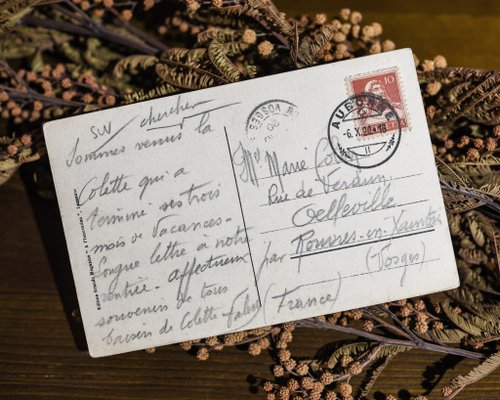 sur chercher
Sommes venus la
Colette qui a
terminé ses trois
mois de vacances.
Longue lettre a notre
rentrée. affectueux
souvenirs de tous
baisers de Colette
VOSGES
10
AUBONNE
-6.X.
II
Mlle Marie
Rue de Verdun
Oelleville
par Rouvres-en-Xaintois
(Vosges)
(France)